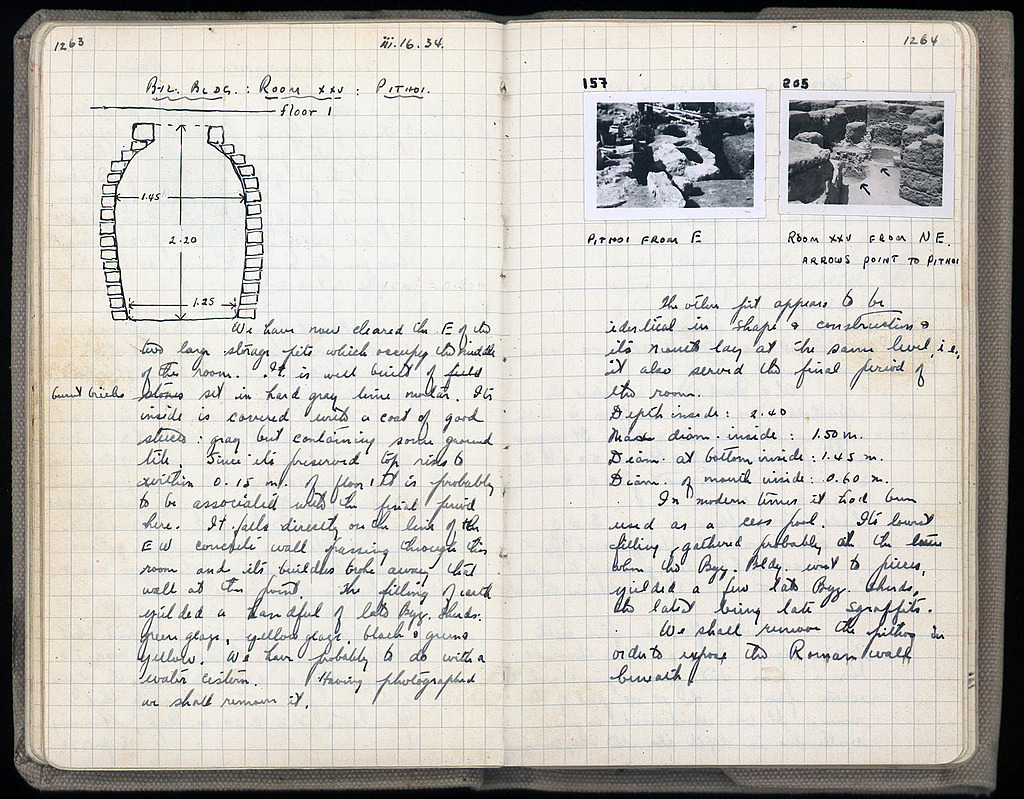 1263
iii.16.34.
Byz. Bldg. : Room XXV : Pithoi.
floor 1
1.45
2.20
1.25
We have now cleared the E of the
two large storage pits which occupy the middle
of the room. It is well built of field
burnt bricks
stones set in hard gray lime mortar. Its
inside is covered with a coat of good
stucco : gray but containing some ground
tile. Since its preserved top rises to
within 0.15 m. of floor 1 it is probably
to be associated with the final period
here. It falls directly on the line of the
E W concrete wall passing through this
room and its builders broke away that
wall at this point. The filling of earth
yielded a handful of late Byz. sherds.
green glaze, yellow glaze, black & green
yellow. We have probably to do with a
water cistern. Having photographed
we shall remove it.
1264
157
205
Pithoi from E
Room XXV from NE.
Arrows point to Pithoi
The other pit appears to be
identical in shape & construction &
its mouth lay at the same level, i.e.,
it also served the final period of
the room.
Depth inside : 2.40
Max diam. inside : 1.50 m.
Diam. at bottom inside : 1.45 m.
Diam. of mouth inside : 0.60 m.
In modern times it had been
used as a cess pool. Its lowest
filling, gathered probably at the time
when the Byz. Bldg. went to pieces,
yielded a few late Byz. sherds,
the latest being late sgraffito.
We shall remove the pithos in
order to expose the Roman wall
beneath